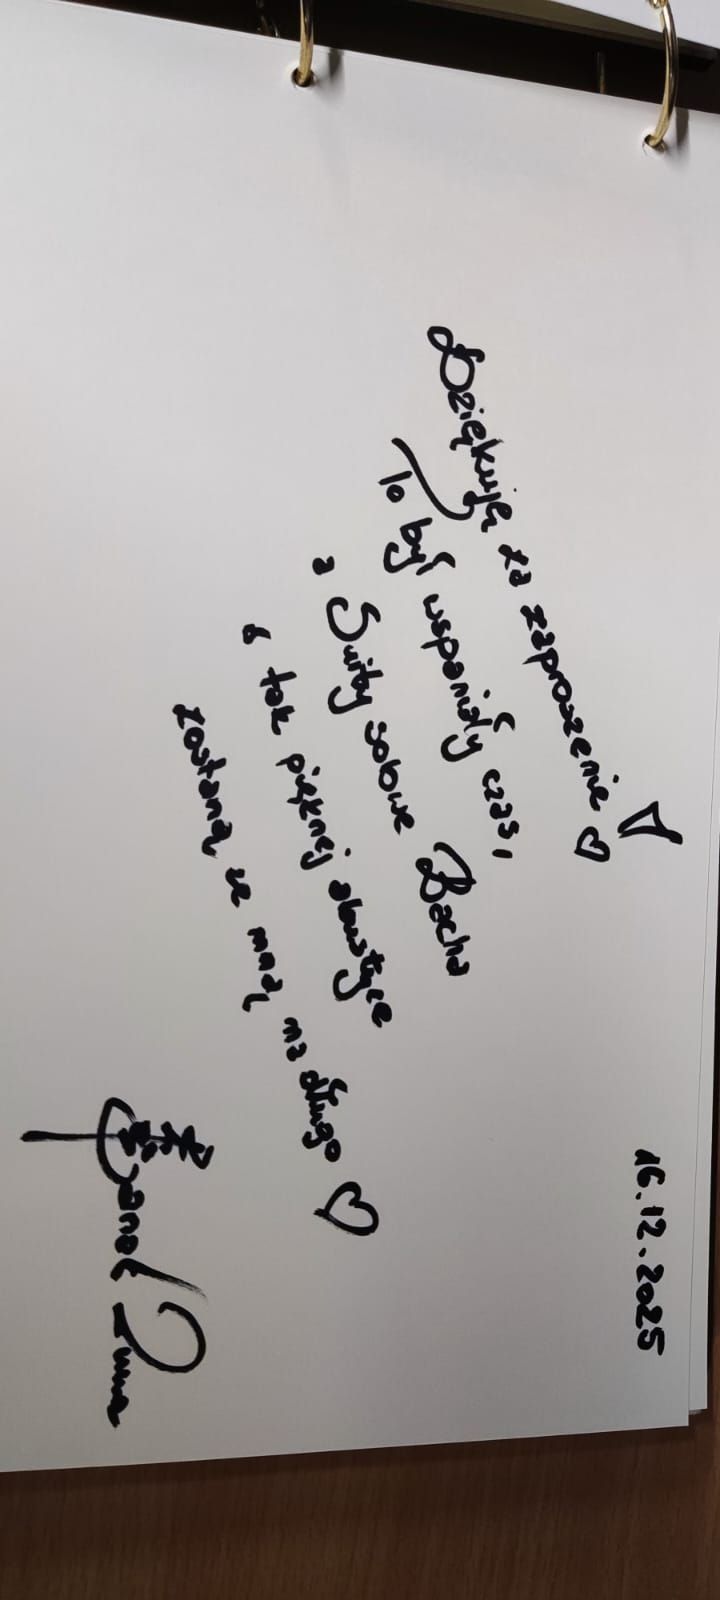 16.12.2025
Dziękuję za zaproszenie ♡
To był wspaniały czas,
a Suity solowe Bacha
w tak pięknej akustyce
zostaną ze mną na długo ♡
Anna